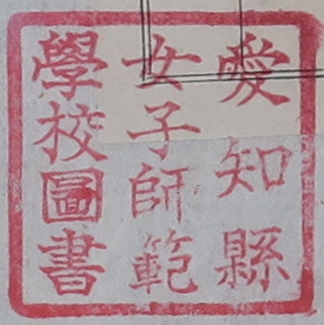 愛知縣
女子師範
學校圖書